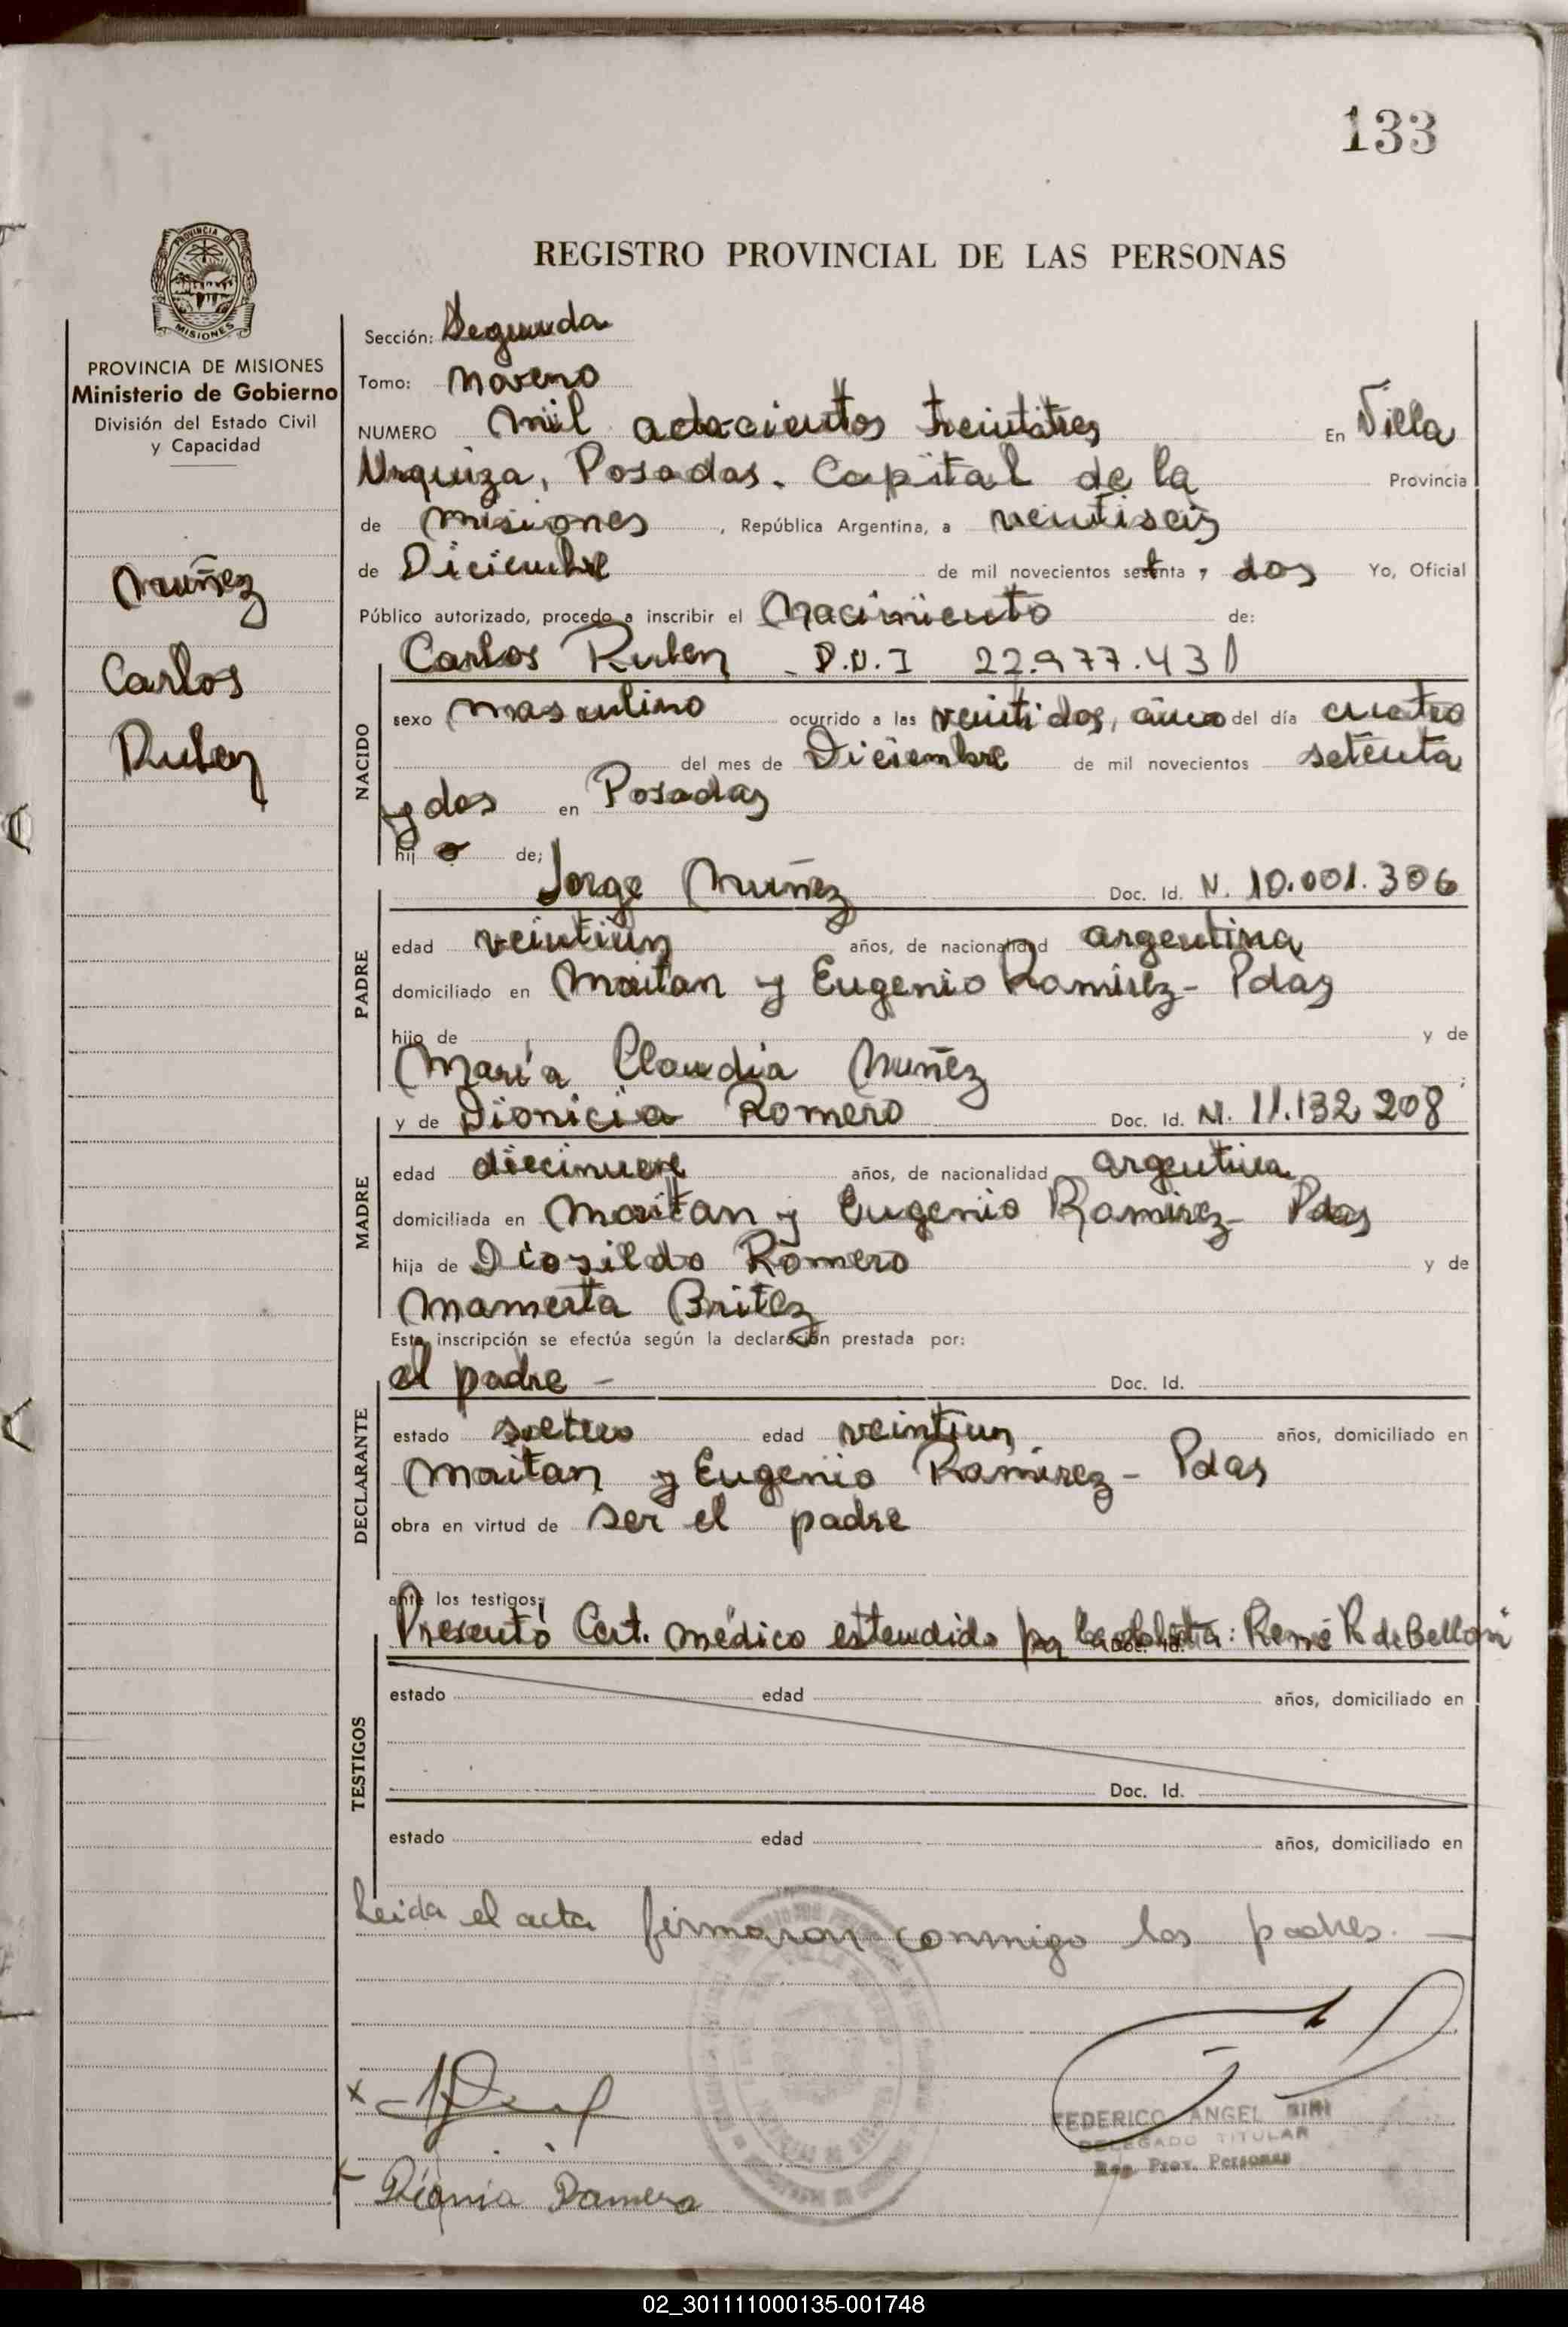 133
PROVINCIA DE
MISIONES
REGISTRO PROVINCIAL DE LAS PERSONAS
PROVINCIA DE MISIONES
Ministerio de Gobierno
División del Estado Civil
y Capacidad
Nuñez
Carlos
Ruben
Sección: Segunda
Tomo: Noveno
NUMERO mil ochocientos treintitres En Villa
Urquiza, Posadas. Capital de la Provincia
de Misiones, República Argentina, a veintiseis
de Diciembre de mil novecientos setenta y dos Yo, Oficial
Público autorizado, procedo a inscribir el Nacimiento de:
Carlos Ruben D.N.I 22.977.431
NACIDO
sexo masculino ocurrido a las veintidos, cinco del día cuatro
del mes de Diciembre de mil novecientos setenta
y dos en Posadas
hijo de;
Jorge Nuñez Doc. Id. N. 10.001.306
PADRE
edad veintiun años, de nacionalidad argentina
domiciliado en Moritan y Eugenio Ramirez - Pdas
hijo de y de
María Claudia Nuñez ;
y de Dionicia Romero Doc. Id. N. 11.132.208
MADRE
edad diecinueve años, de nacionalidad argentina
domiciliada en Moritan y Eugenio Ramirez - Pdas
hija de Romero y de
Mamerta Britez
Esta inscripción se efectúa según la declaración prestada por:
el padre - Doc. Id.
DECLARANTE
estado soltero edad veintiun años, domiciliado en
Moritan y Eugenio Ramirez - Pdas
obra en virtud de ser el padre
ante los testigos;
Presentó Cert. médico estendido por la : René R de Belloni
TESTIGOS
estado edad años, domiciliado en
Doc. Id.
estado edad años, domiciliado en
Leida el acta firmaron conmigo los padres. -
FEDERICO ANGEL BIRI
DELEGADO TITULAR
Reg. Prov. Personas
02_301111000135-001748